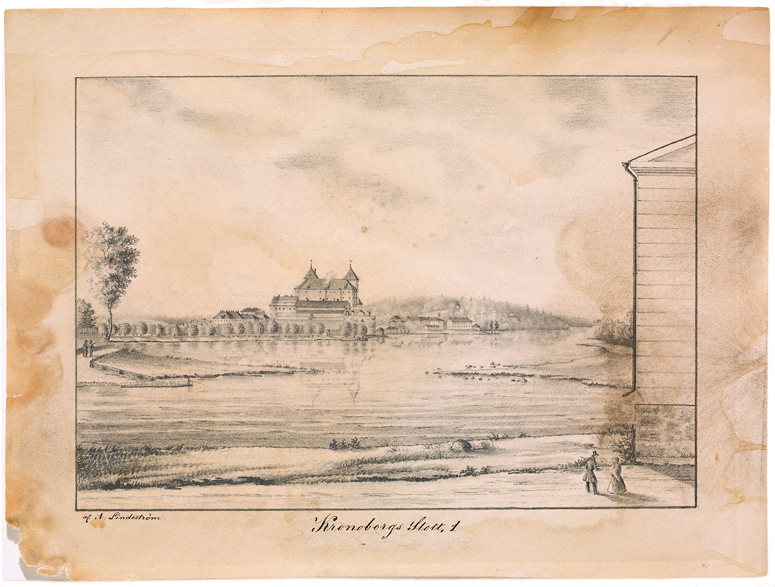 af A. Lindeström.
Kronobergs Slott, 1